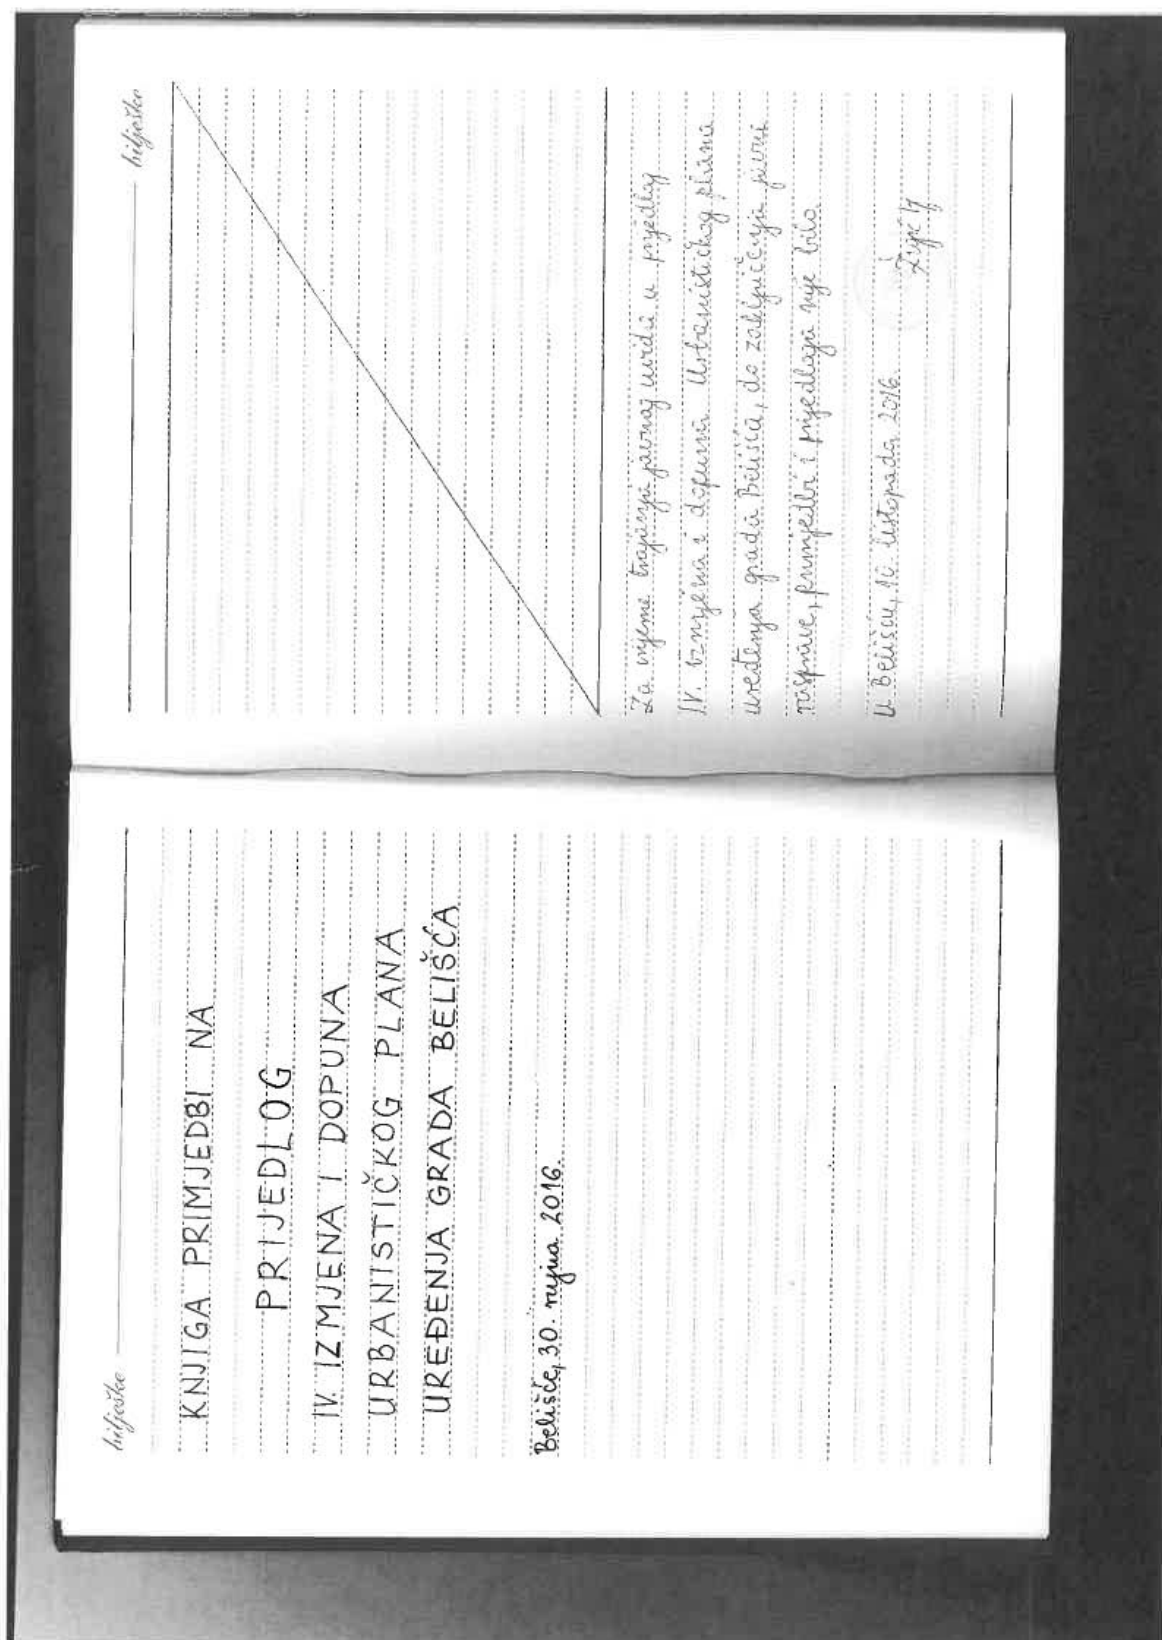 bilješke
KNJIGA PRIMJEDBI NA
PRIJEDLOG
IV. IZMJENA I DOPUNA
URBANISTIČKOG PLANA
UREĐENJA GRADA BELIŠĆA
Belišće, 30. rujna 2016.
bilješke
Za vrijeme trajanja javnog uvida u prijedlog
IV. izmjena i dopuna Urbanističkog plana
uređenja grada Belišća, do zaključenja javne
rasprave, primjedbi i prijedloga nije bilo.
U Belišću, 10. listopada 2016.